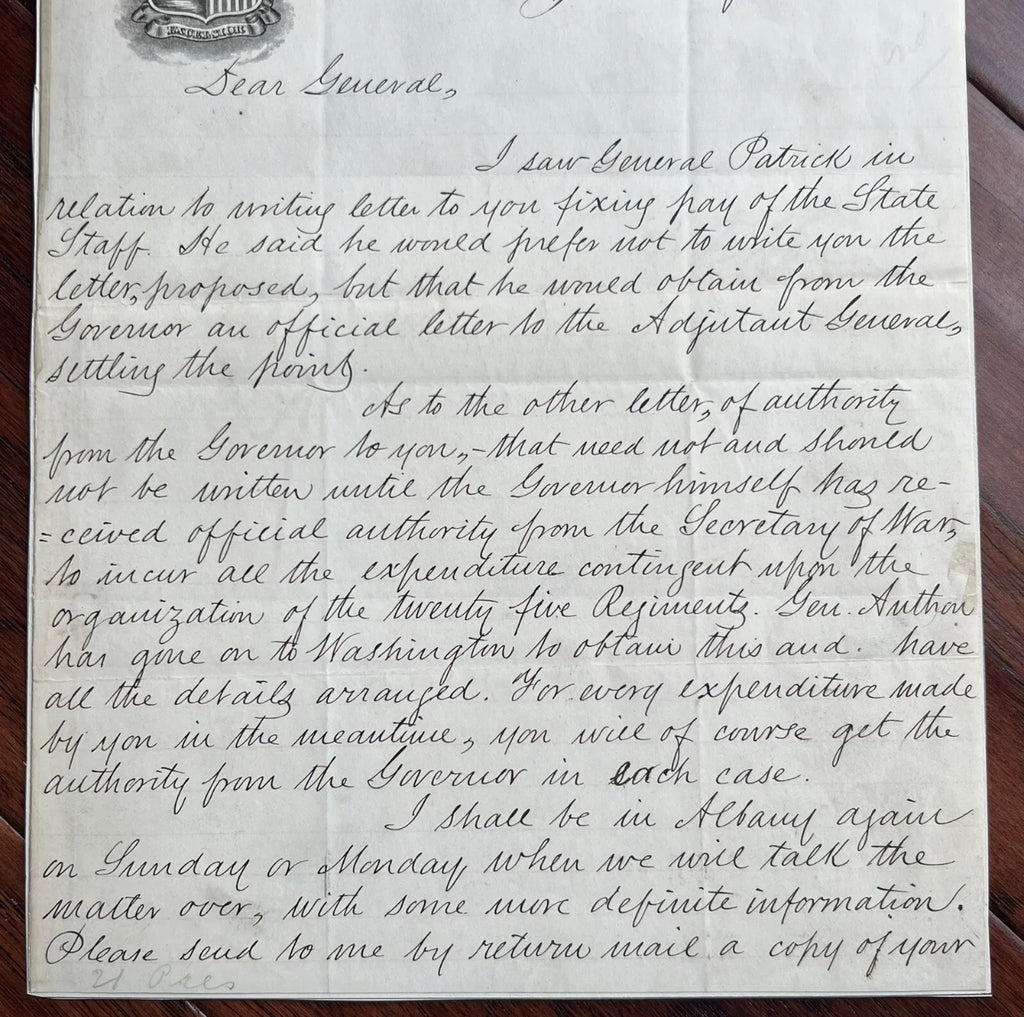 EXCELSIOR
Dear General,
I saw General Patrick in
relation to writing letter to you fixing pay of the State
Staff. He said he would prefer not to write you the
letter, proposed, but that he would obtain from the
Governor an official letter to the Adjutant General,
settling the point.
As to the other letter, of authority
from the Governor to you,-that need not and should
not be written until the Governor himself has re-
=ceived official authority from the Secretary of War,
to incur all the expenditure contingent upon the
organization of the twenty five Regiments. Gen. Anthon
has gone on to Washington to obtain this and. have
all the details arranged. For every expenditure made
by you in the meantime, you will of course get the
authority from the Governor in each case.
I shall be in Albany again
on Sunday or Monday, when we will talk the
matter over, with some more definite information.
Please send to me by return mail a copy of your
21